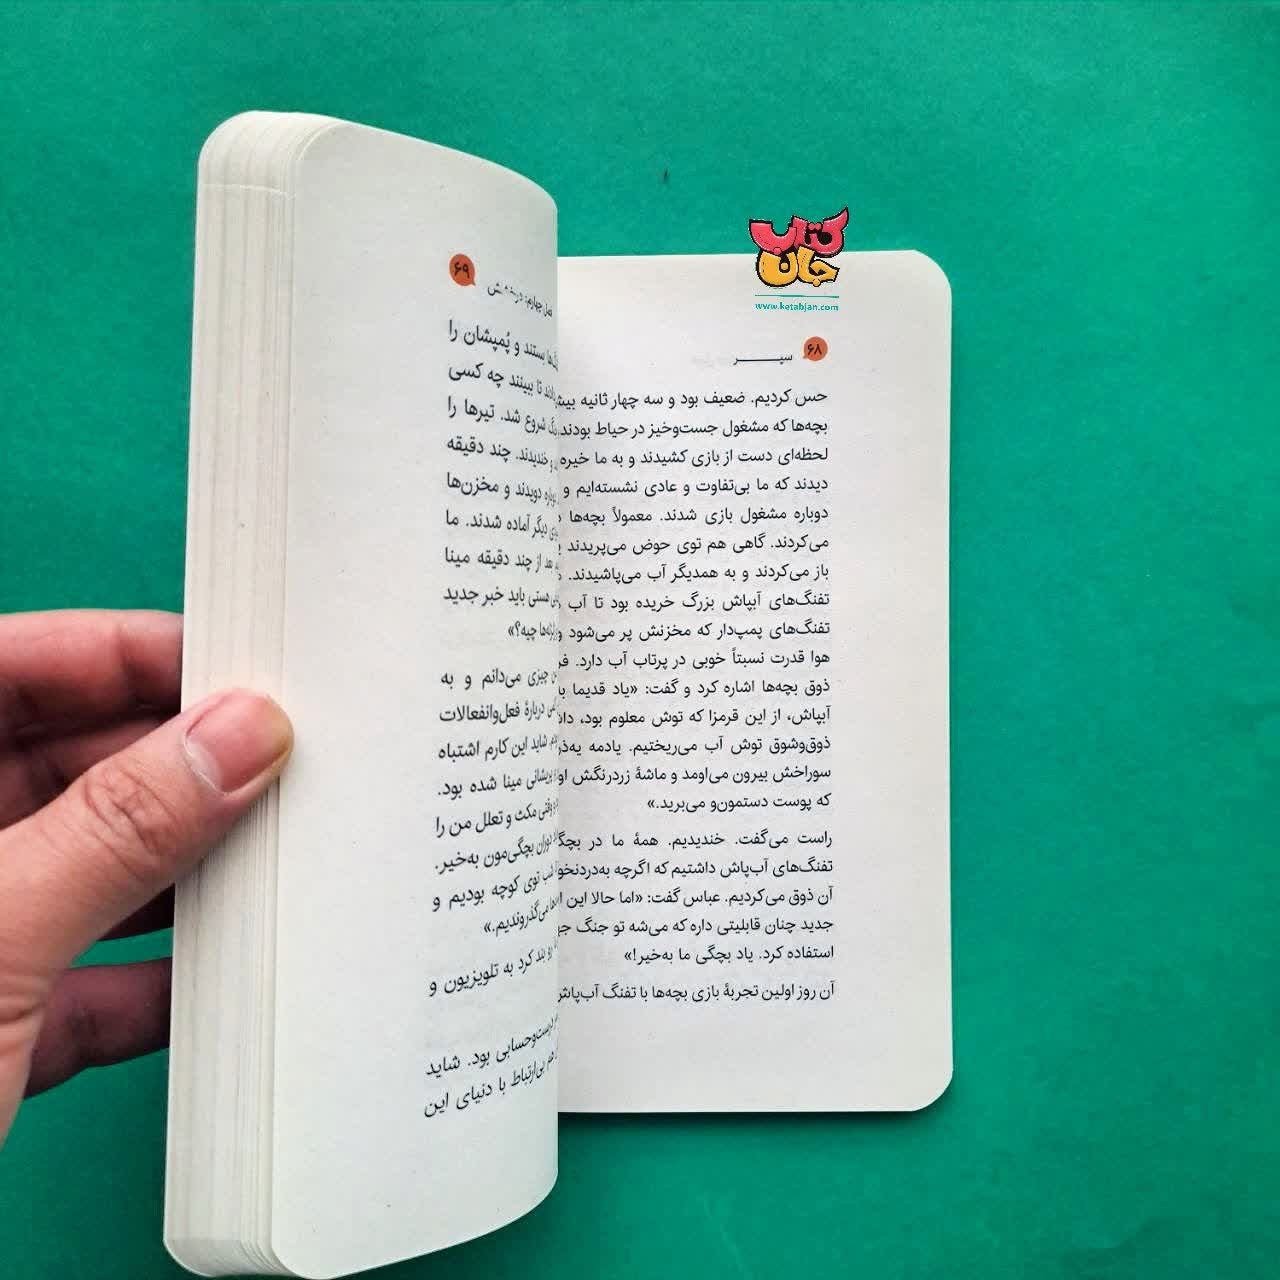 کتاب
جان
www.ketabjan.com
۶۸
سپر
حس کردیم. ضعیف بود و سه چهار ثانیه
بچه‌ها که مشغول جست‌وخیز در حیاط بودند،
لحظه‌ای دست از بازی کشیدند و به ما خیره
دیدند که ما بی‌تفاوت و عادی نشسته‌ایم و
دوباره مشغول بازی شدند. معمولاً بچه‌ها
می‌کردند. گاهی هم توی حوض می‌پریدند
باز می‌کردند و به همدیگر آب می‌پاشیدند.
تفنگ‌های آبپاش بزرگ خریده بود تا آب
تفنگ‌های پمپ‌دار که مخزنش پر می‌شود
هوا قدرت نسبتاً خوبی در پرتاب آب دارد.
ذوق بچه‌ها اشاره کرد و گفت: «یاد قدیما
آبپاش، از این قرمزا که توش معلوم بود،
ذوق‌وشوق توش آب می‌ریختیم. یادمه
سوراخش بیرون می‌اومد و ماشهٔ زردرنگش
که پوست دستمون‌و می‌برید.»
راست می‌گفت. خندیدیم. همهٔ ما در
تفنگ‌های آب‌پاش داشتیم که اگرچه
آن ذوق می‌کردیم. عباس گفت: «اما حالا این
جدید چنان قابلیتی داره که می‌شه تو جنگ
استفاده کرد. یاد بچگی ما به‌خیر!»
آن روز اولین تجربهٔ بازی بچه‌ها با تفنگ آب‌پاش
۶۹
فصل چهارم:
بستند و پُمپشان را
تا ببینند چه کسی
شروع شد. تیرها را
و خندیدند. چند دقیقه
دویدند و مخزن‌ها
دیگر آماده شدند. ما
از چند دقیقه مینا
هستی باید خبر جدید
چیه؟»
چیزی می‌دانم و به
دربارهٔ فعل‌وانفعالات
شاید این کارم اشتباه
پریشانی مینا شده بود.
وقتی مکث و تعلل من را
دوران بچگی‌مون به‌خیر.
شب توی کوچه بودیم و
می‌گذروندیم.»
بند کرد به تلویزیون و
درست‌وحسابی بود. شاید
هم بی‌ارتباط با دنیای این